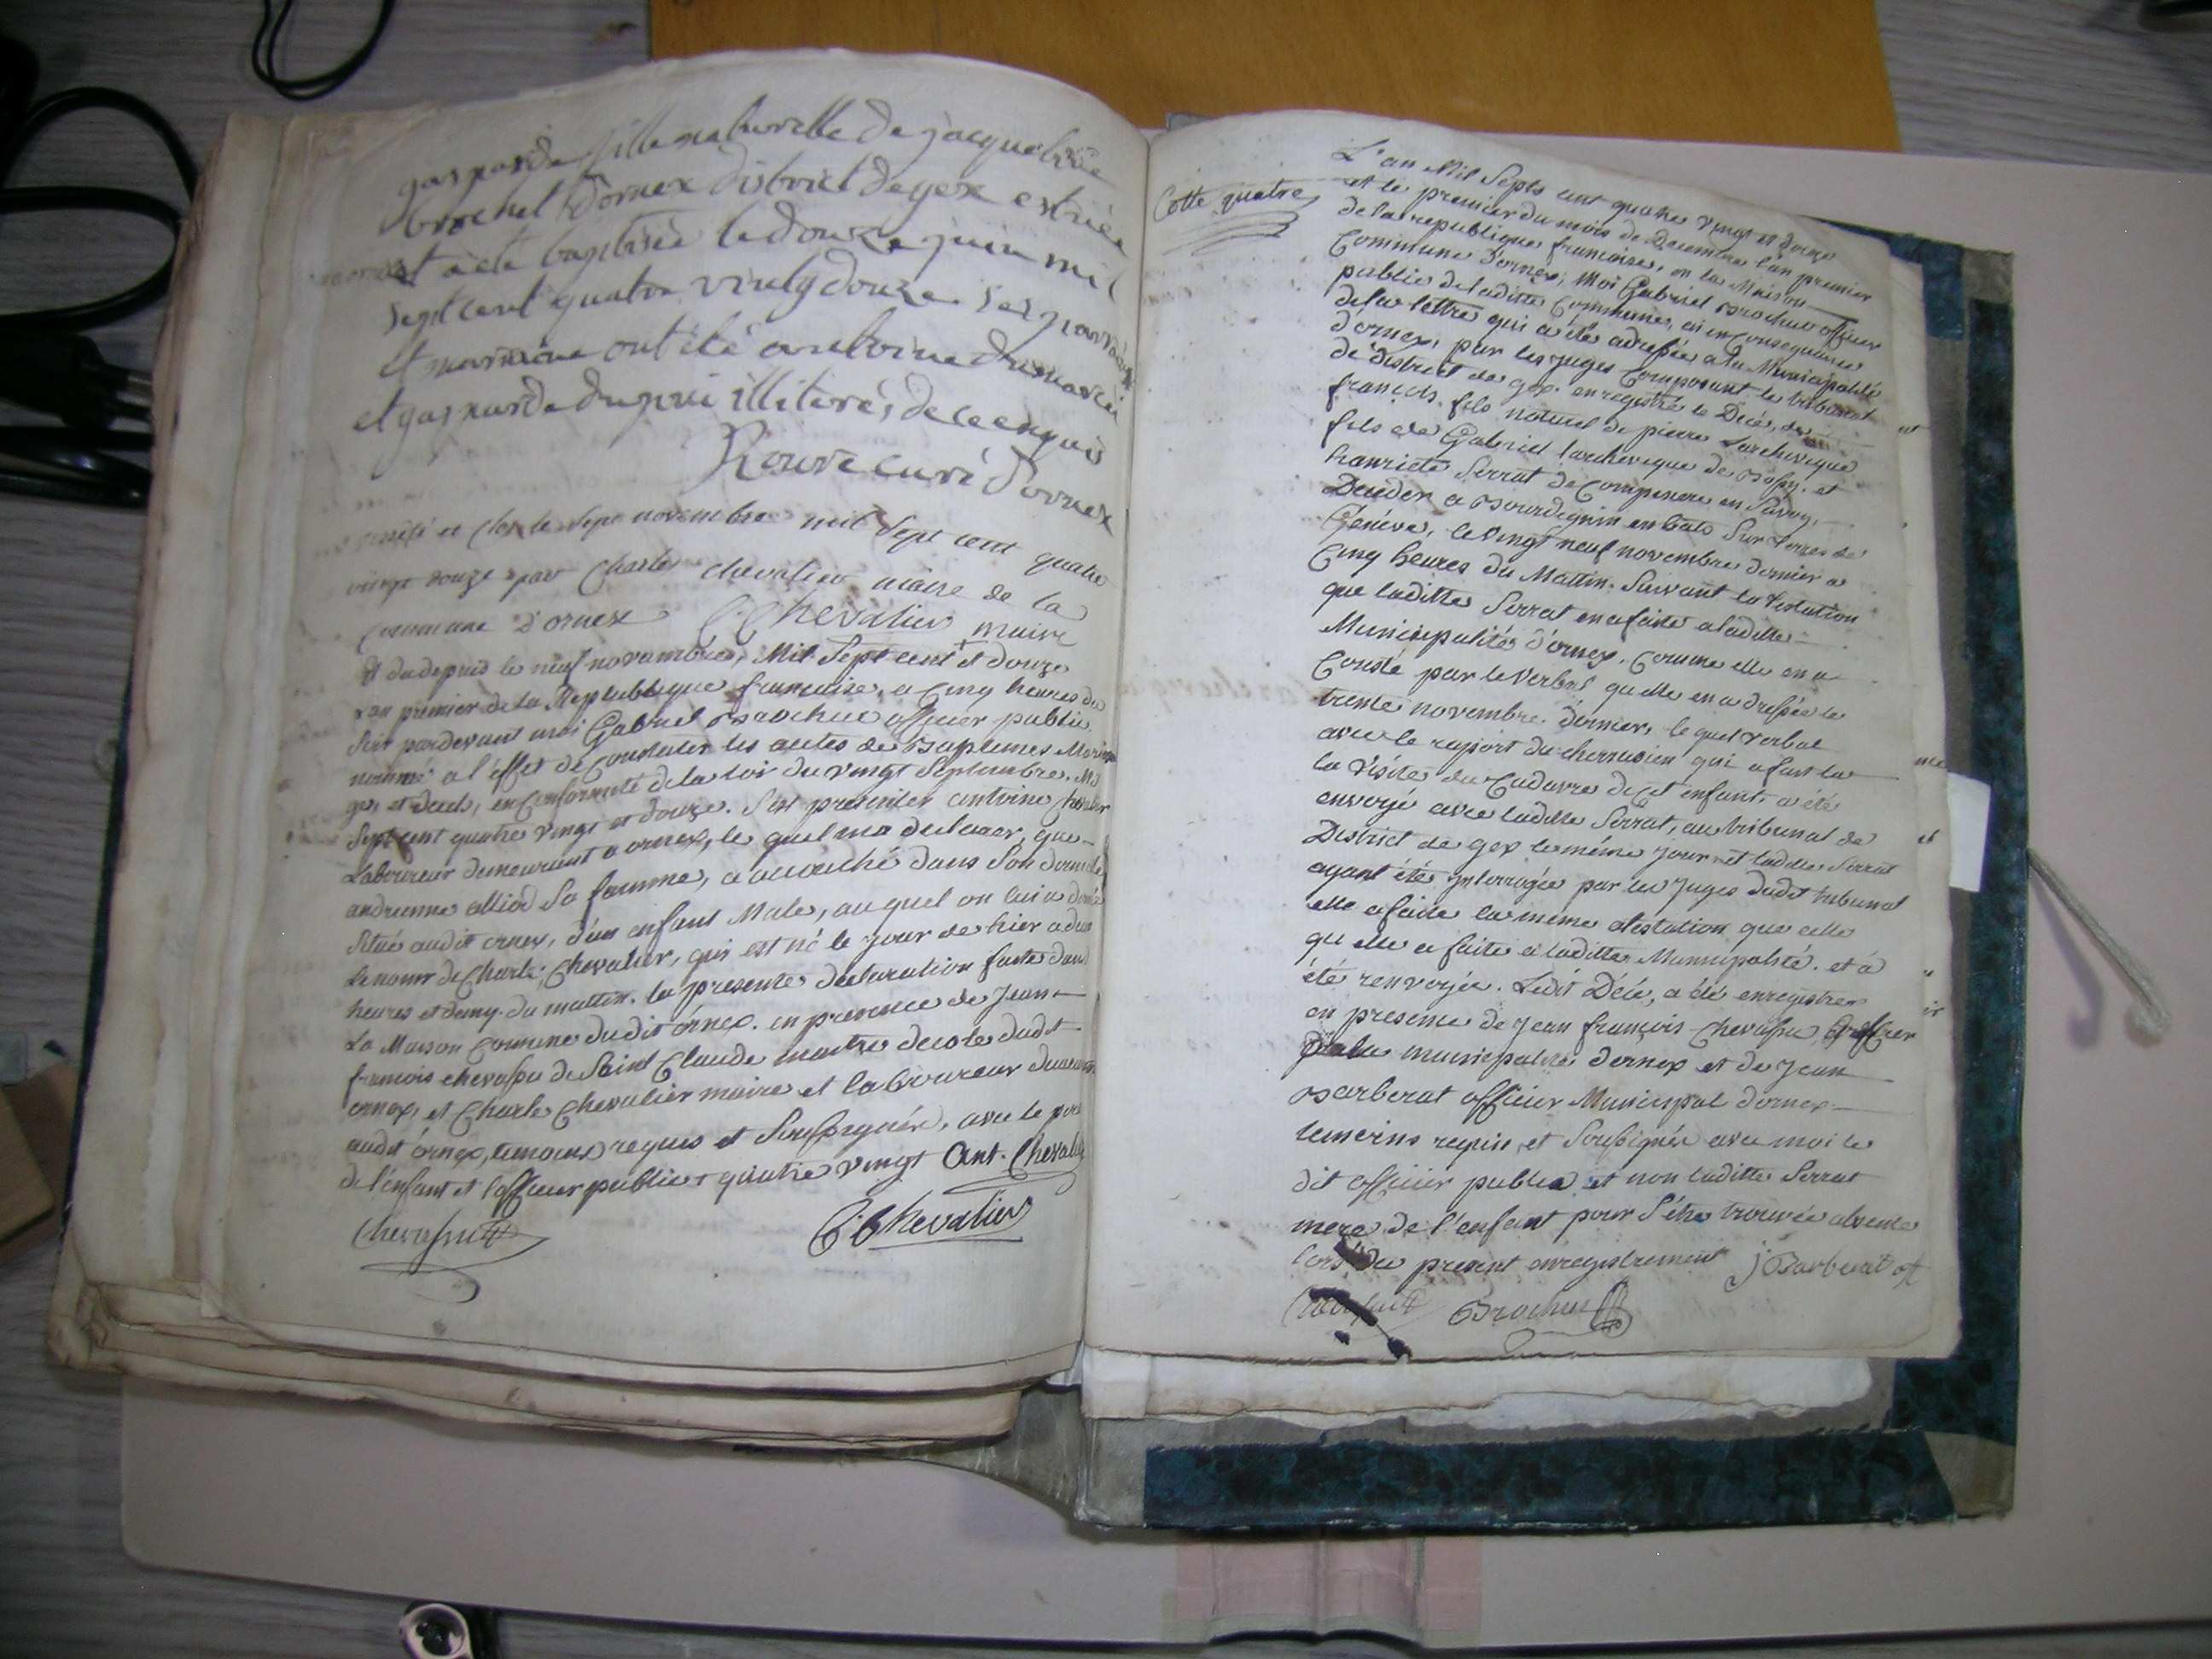 gasparde fille naturelle de jacqueline
brochut d'ornex district de gex est née
et a été baptisée le douze juin mil
sept cent quatre vingt douze ses parrain
et marraine ont été antoine dumarcé
et gasparde dupui illiterés de ce enquis
Roure curé d'ornex
arrêté et clos le sept novembre mil sept cent quatre
vingt douze par Charle chevalier maire de la
commune d'ornex C. Chevalier maire
Et du depuis le neuf novambre, Mil Sept cent + et douze
l'an premier de la Republique francaise, a Cinq heures du
soir pardevant moi Gabriel Brochut officier public
nommé a l'effet de Constater les actes de Baptemes Maria
ges et deces, en Conformité de la loi du vingt Septembre, Mil
Sept cent quatre vingt et douze. S'est presenter antoine Chevalier
Laboureur demeurant a ornex, le quel ma declarer, que
andrienne alliod sa famme, a accouché dans son domicile
situé audit ornex, d'un enfant Male, au quel on lui a donné
le nom de Charle Chevalier, qui est né le jour de hier a deux
heures et demy du mattin. la presente declaration faite dans
La Maison Commune dudit ornex. en presence de Jean
francois chevassu de Saint Claude maitre decole dudit
ornex, et Charle Chevalier maire et laboureur demeurant
audit ornex, temoins requis et soussignés, avec le pere
de l'enfant et l'officier public + quatre vingt Ant. Chevalier
Chevassu C. Chevalier
Cotte quatre
L'an Mil Septs cent quatre vingt et douze
et le premier du mois de Decembre l'an premier
de la republique francaise, en la Maison
Commune d'ornex, Moi Gabriel Brochut officier
public de ladite Commune, ai en Consequence
de la lettre qui a été adressée a la Municipalité
d'ornex, par les juges Composant le tribunal
de district de gex. enregistré le Decés, de
francois fils naturel de pierre Larcheveque
fils de Gabriel larcheveque de Bossy. et
hanriete Serrat de Compesiere en Savoy,
Deceder a Bourdignin en bas Sur terres de
Genéve, le vingt neuf novembre dernier a
Cinq heures du Mattin. Suivant la testation
que laditte Serrat en a faite a laditte
Municipalité d'ornex. Comme elle en a
Consté par le Verbal qu'elle en a dressée le
trente novembre dernier, le quel Verbal
avec le raport du cherrusien qui a fait la
la Visite du Cadavre de cet enfant, a été
envoyé avec laditte Serrat, au tribunal de
District de gex le même jour et laditte Serrat
ayant étée interrogée par les Juges dudit tribunal
elle a faite la même atestation que celle
qu'elle a faite a laditte Municipalité. et a
été renvoyée. Ledit Décé, a été enregistrer
en presence de Jean francois Chevassu Greffier
de la municipalité dornex et de Jean
Barberat officier Municipal d'ornex
temoins requis, et Soussignés avec moi le
dit officier public et non laditte Serrat
mere de l'enfant pour s'étre trouvée absente
lors du present enregistrement J Barberat off
Chevassu Brochut